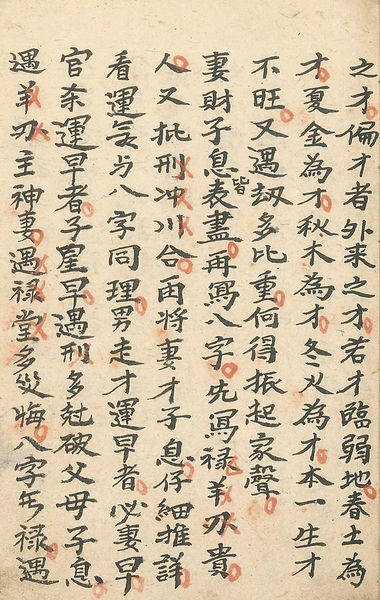 之才偏才者外来之才若才臨弱地春土為
才夏金為才秋木為才冬火為才本一生才
不旺又遇劫多比重何得振起家聲
妻財子息表皆盡再寫八字先寫禄羊刃貴
人又批刑冲川合再将妻才子息仔細推詳
看運氣与八字同理男走才運早者必妻早
官杀運早者子星早遇刑多尅破父母子息
遇羊刃主神妻遇禄堂多災悔八字無禄遇